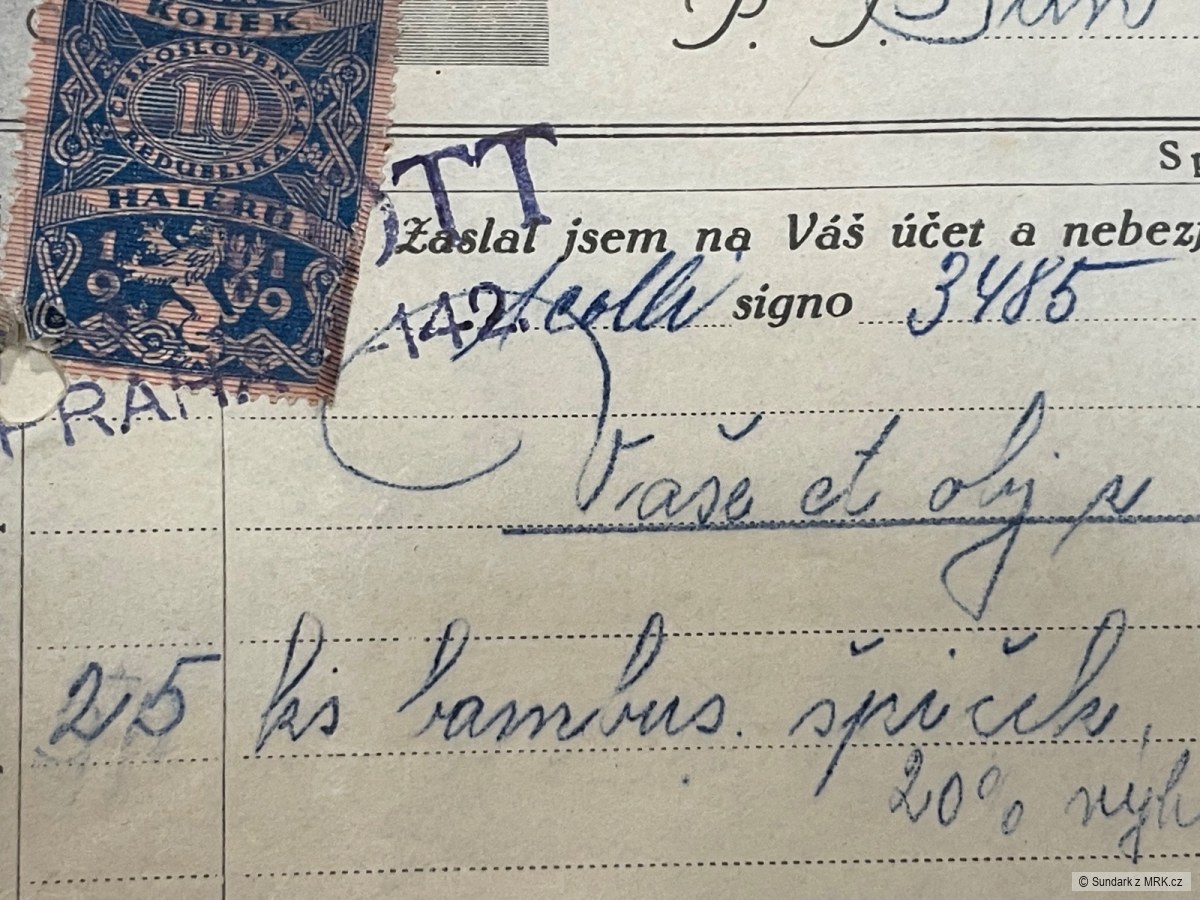 KOLEK
ČESKOSLOVENSKÁ
10
REPUBLIKA
HALÉŘŮ
1919
P. T.
OTT
Zaslal jsem na Váš účet a nebezp
142. colli signo 3485
PRAHA
Vaše ct obj
25 ks bambus. špiček,
20% výh
© Sundark z MRK.cz